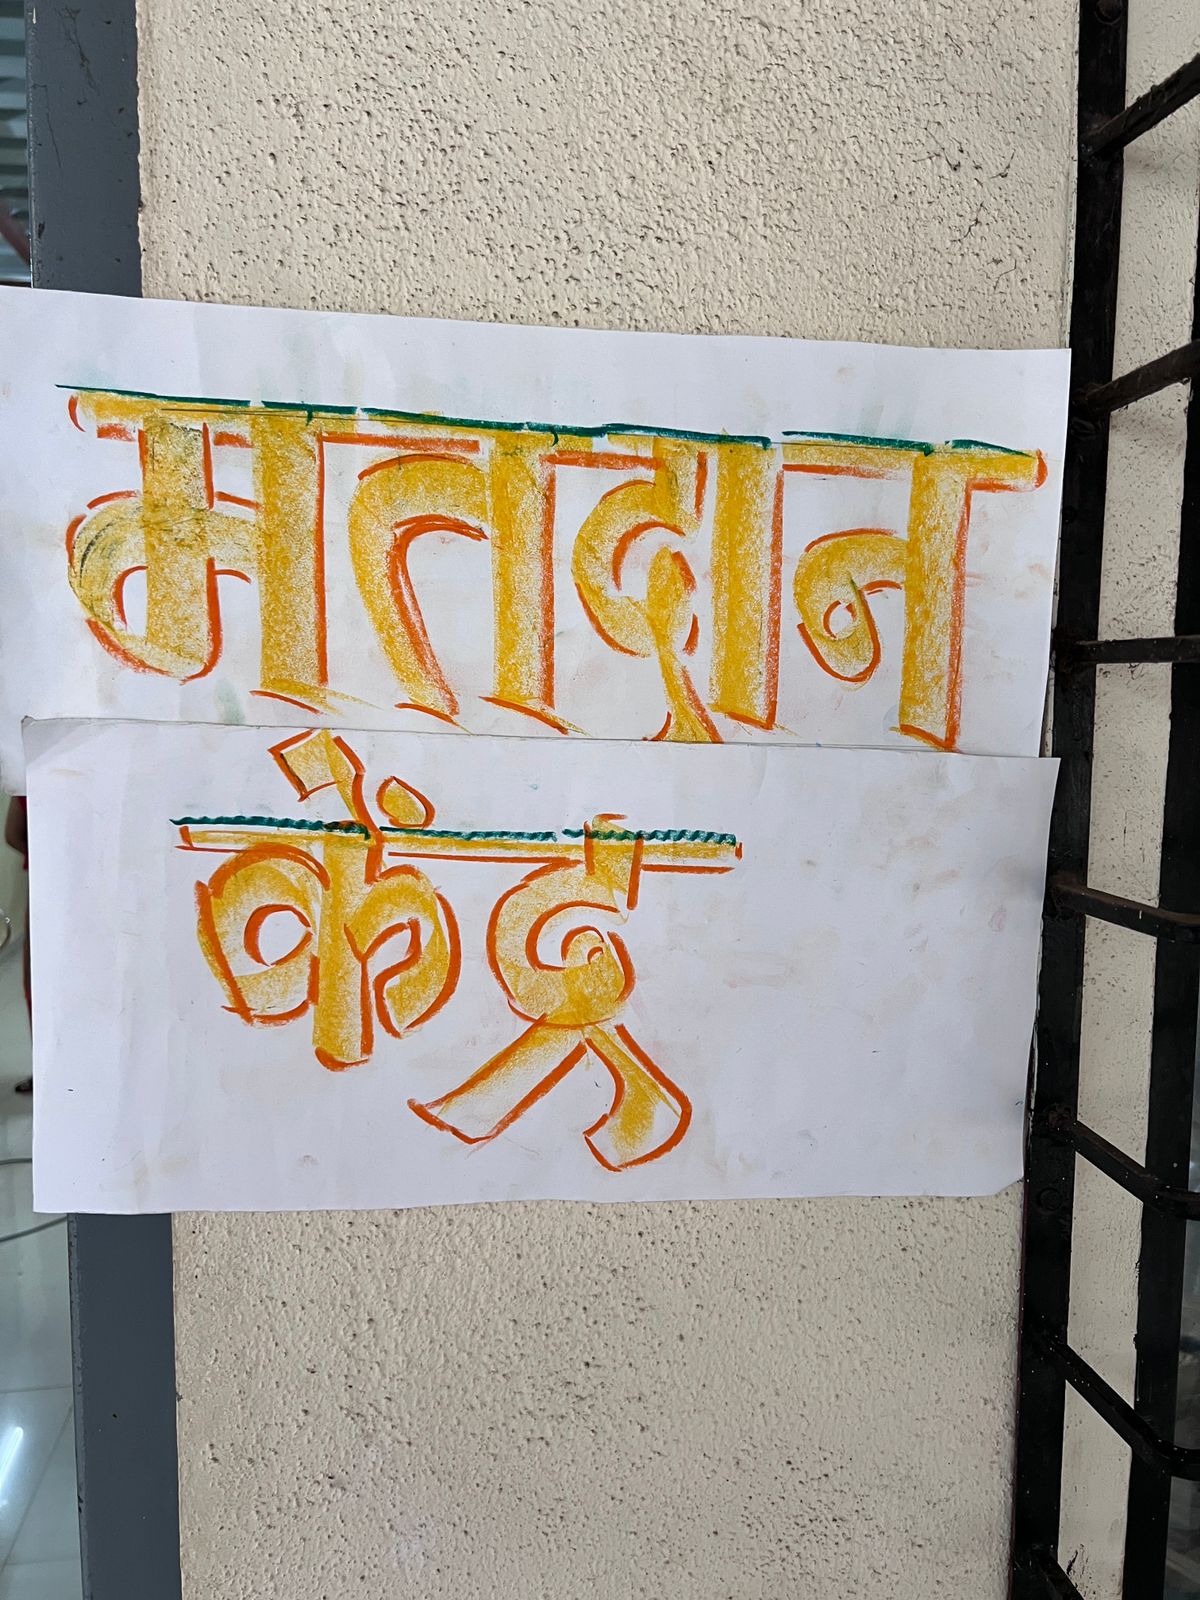 मतदान
केंद्र